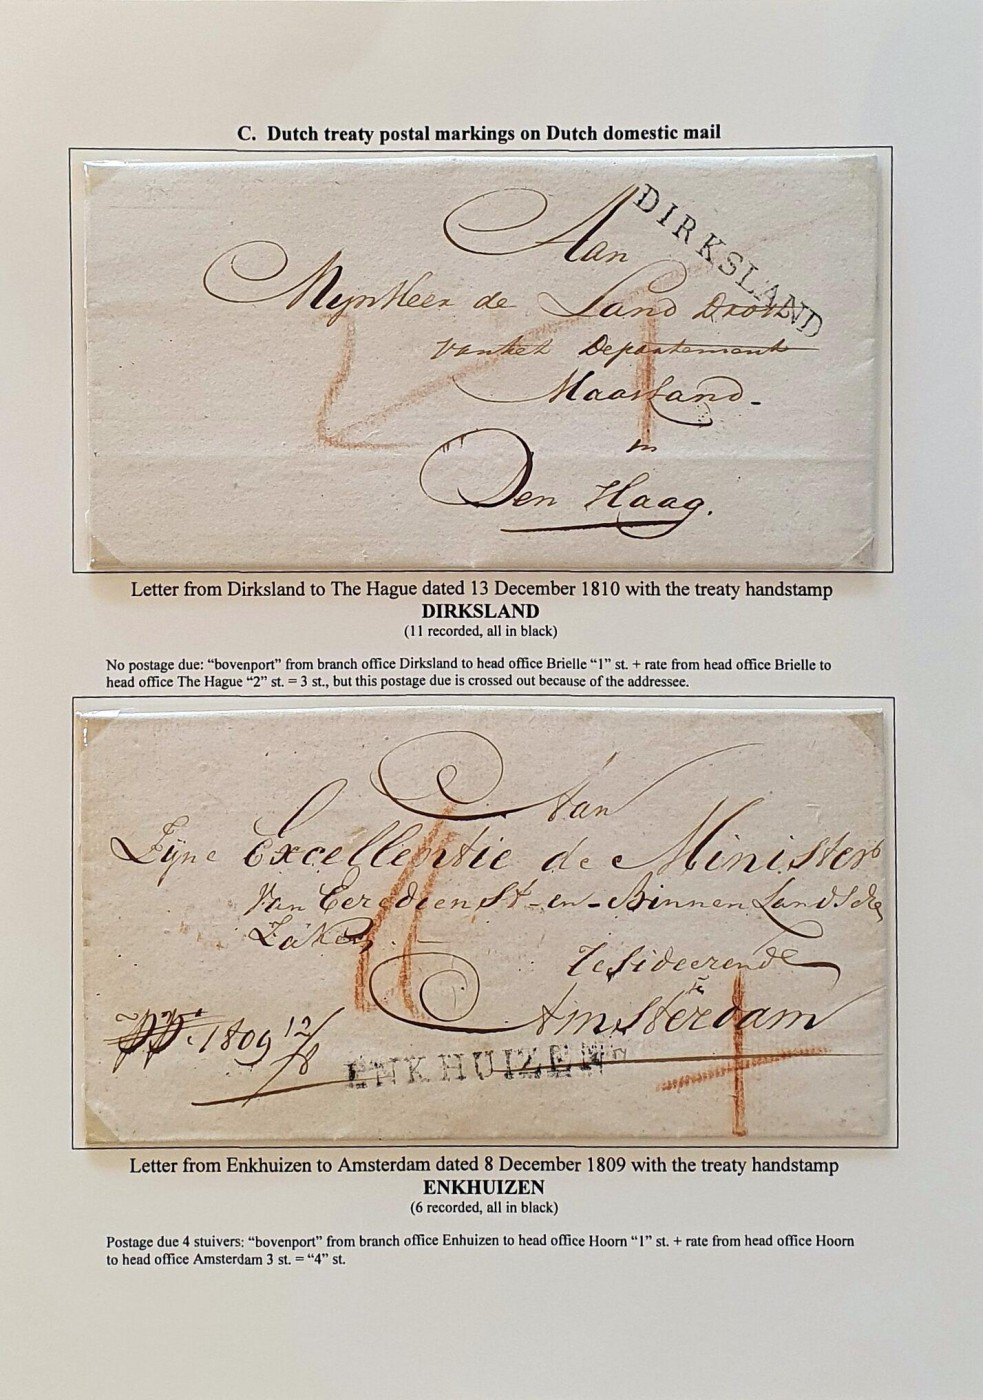 C. Dutch treaty postal markings on Dutch domestic mail
DIRKSLAND
Aan
MynHeer de Land Drost
van het Departement
Maasland-
in
Den Haag.
2 1
Letter from Dirksland to The Hague dated 13 December 1810 with the treaty handstamp
DIRKSLAND
(11 recorded, all in black)
No postage due: “bovenport” from branch office Dirksland to head office Brielle “1” st. + rate from head office Brielle to
head office The Hague “2” st. = 3 st., but this postage due is crossed out because of the addressee.
Aan
Zijne Excellentie de Minister
Van Eeredienst-en-Binnen Landsche
Zaken
Resideerende
te
Amsterdam
1809 12/8
ENKHUIZEN
Letter from Enkhuizen to Amsterdam dated 8 December 1809 with the treaty handstamp
ENKHUIZEN
(6 recorded, all in black)
Postage due 4 stuivers: “bovenport” from branch office Enhuizen to head office Hoorn “1” st. + rate from head office Hoorn
to head office Amsterdam 3 st. = “4” st.